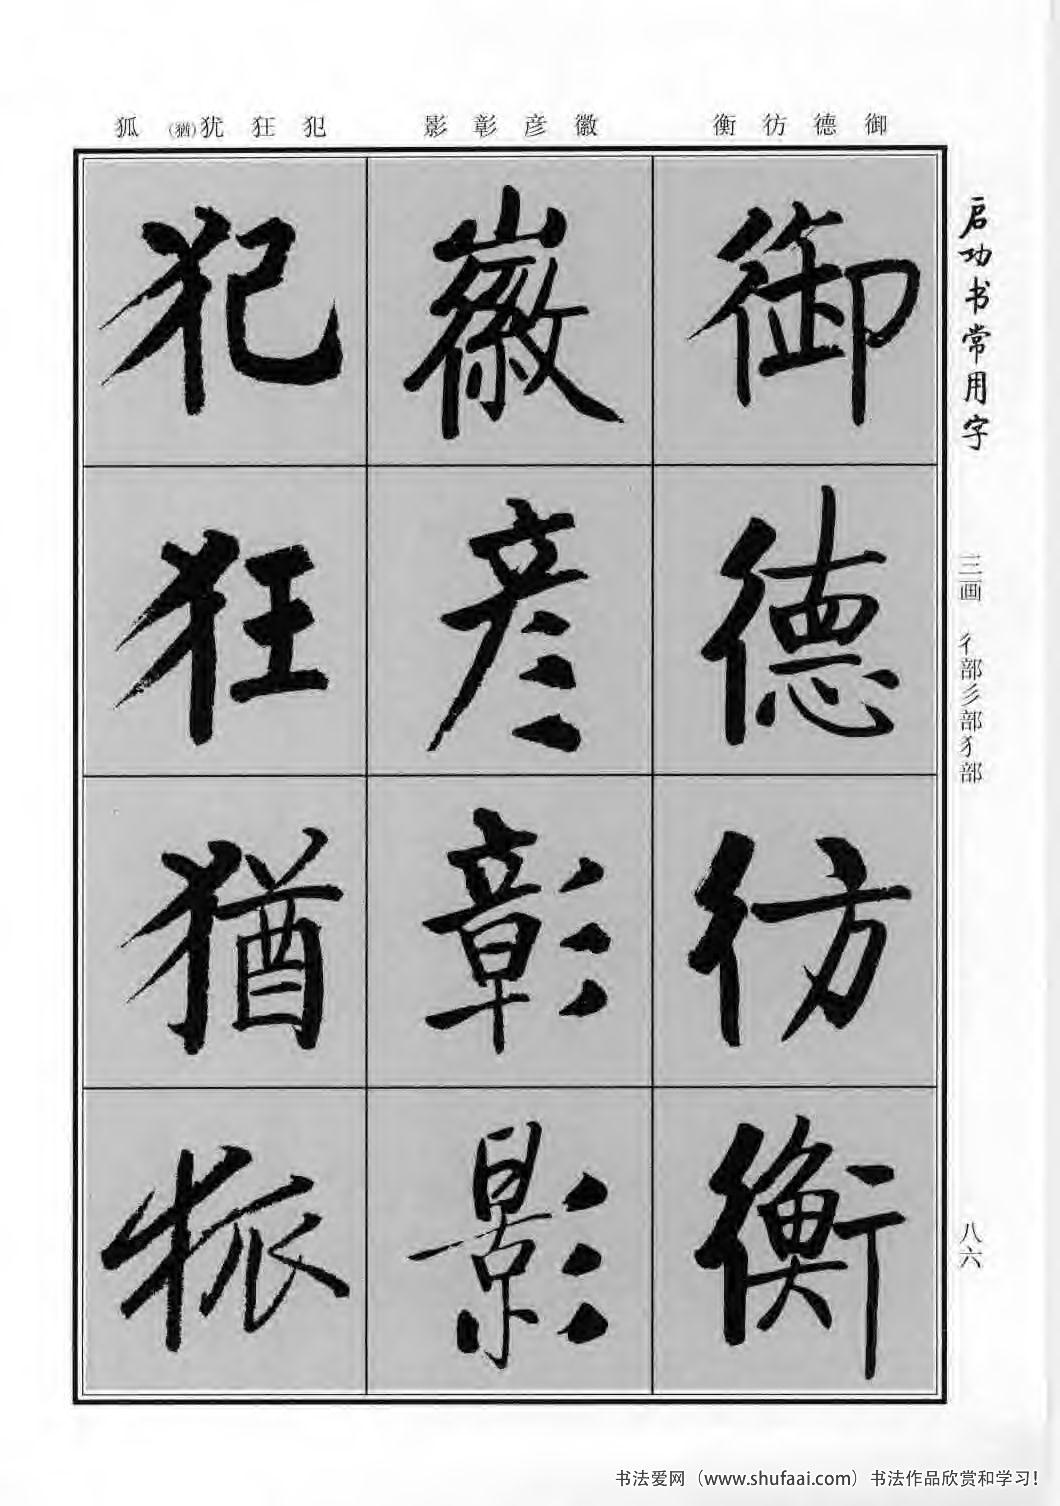 御德彷衡
徽彦彰影
犯狂犹(猶)狐
启功书常用字
三画 彳部彡部犭部
八六
御
德
彷
衡
徽
彦
彰
影
犯
狂
猶
狐
书法爱网（www.shufaai.com）书法作品欣赏和学习!